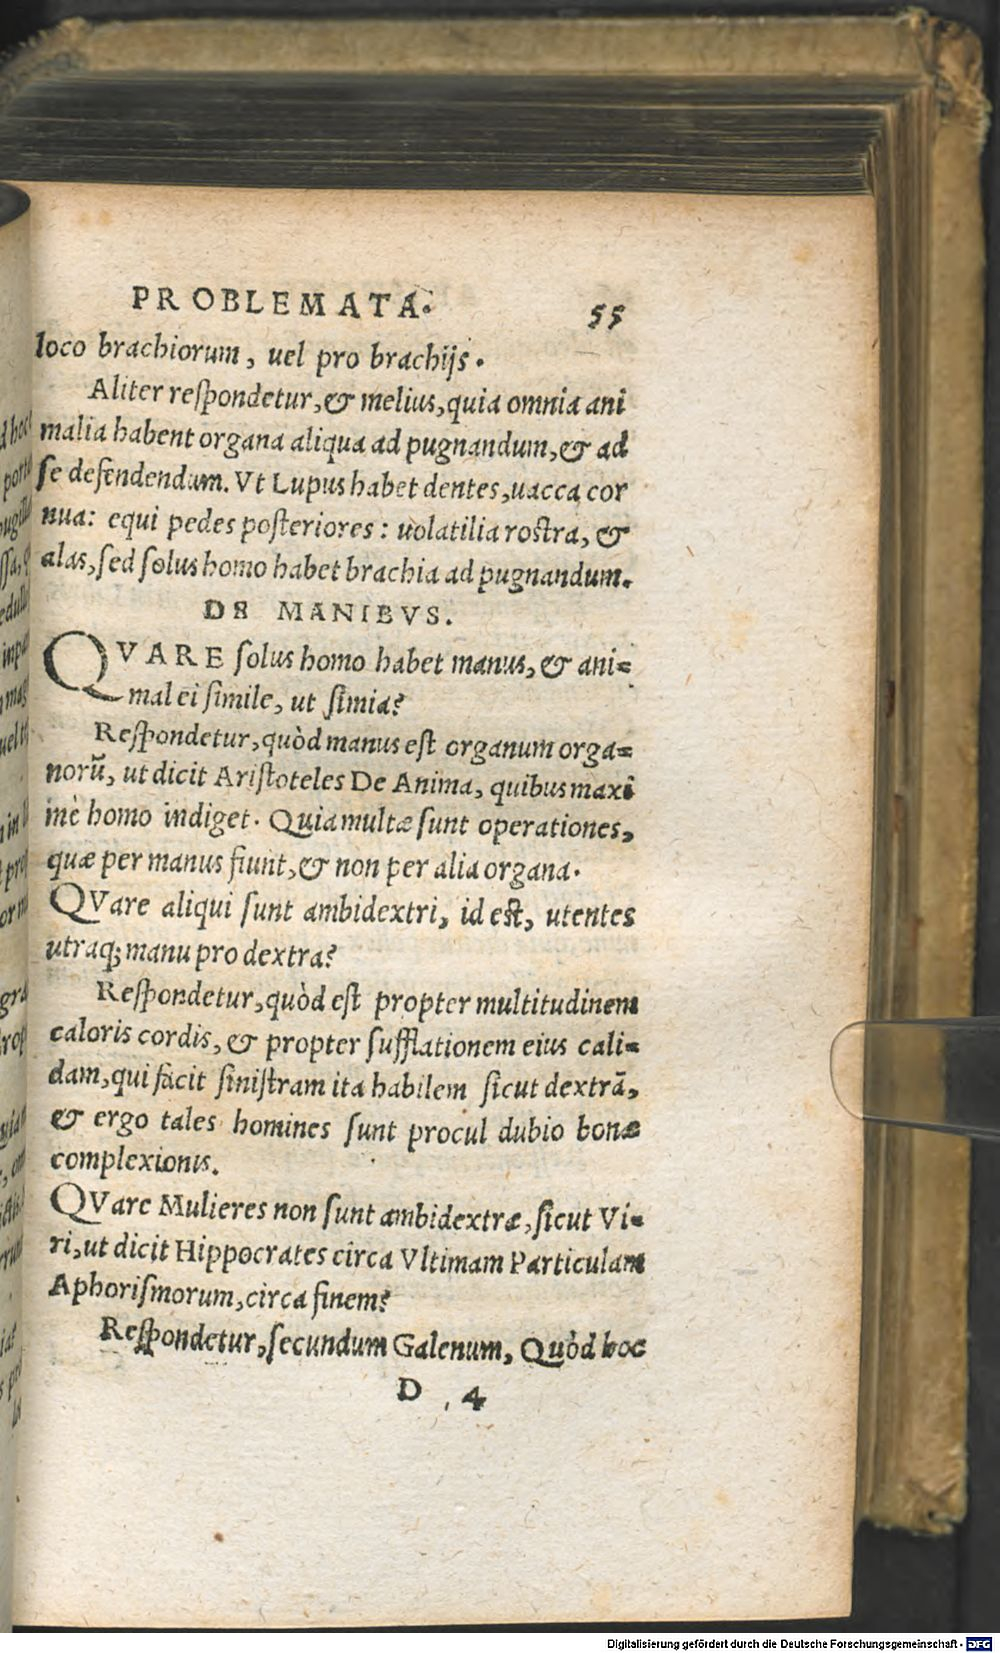 PROBLEMATA. 55
loco brachiorum, uel pro brachijs.
Aliter reſpondetur, & melius, quia omnia ani
malia habent organa aliqua ad pugnandum, & ad
ſe defendendum. Vt Lupus habet dentes, uacca cor
nua: equi pedes poſteriores: uolatilia roſtra, &
alas, ſed ſolus homo habet brachia ad pugnandum.
DE MANIBVS.
QVARE ſolus homo habet manus, & ani=
mal ei ſimile, ut ſimia?
Reſpondetur, quòd manus eſt organum orga=
norū, ut dicit Ariſtoteles De Anima, quibus maxi
mè homo indiget. Quia multæ ſunt operationes,
quæ per manus fiunt, & non per alia organa.
QVare aliqui ſunt ambidextri, id eſt, utentes
utraq; manu pro dextra?
Reſpondetur, quòd eſt propter multitudinem
caloris cordis, & propter ſufflationem eius cali=
dam, qui facit ſiniſtram ita habilem ſicut dextrā,
& ergo tales homines ſunt procul dubio bonæ
complexionis.
QVare Mulieres non ſunt ambidextræ, ſicut Vi=
ri, ut dicit Hippocrates circa Vltimam Particulam
Aphoriſmorum, circa finem?
Reſpondetur, ſecundum Galenum, Quòd hoc
D 4
Digitalisierung gefördert durch die Deutsche Forschungsgemeinschaft - DFG